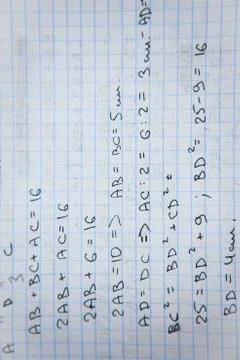 A " D " 3 C
AB + BC + AC = 16
2AB + AC = 16
2AB + 6 = 16
2AB = 10 => AB = BC = 5 см.
AD = DC => AC : 2 = 6 : 2 = 3 см. - AD =
BC² = BD² + CD² =
25 = BD² + 9 ; BD² = 25 - 9 = 16
BD = 4 см.